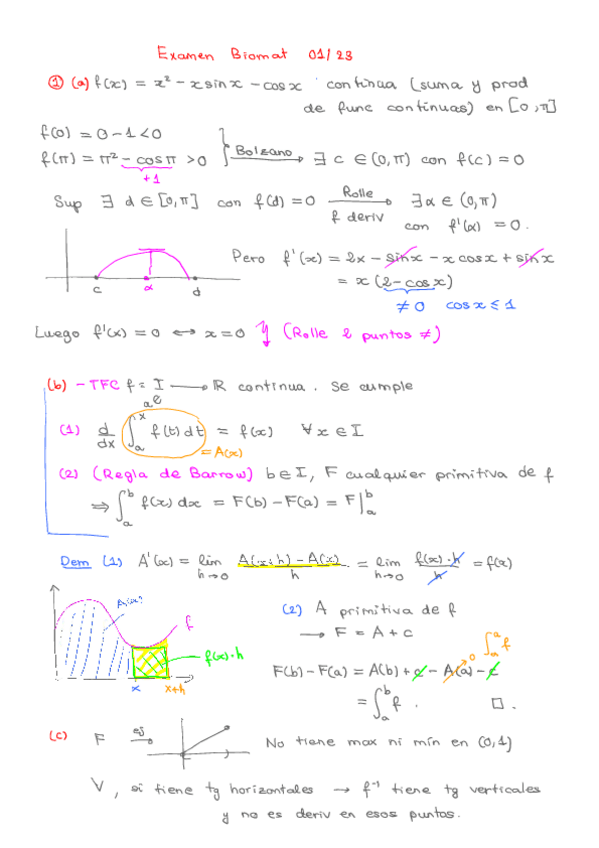 Examen Biomat 01/23
① (a) f(x) = x² - x sin x - cos x continua (suma y prod
de func continuas) en [0,π]
f(0) = 0 - 1 < 0
f(π) = π² - cos π > 0
+1
Bolzano → ∃ c ∈ (0,π) con f(c) = 0
Sup ∃ d ∈ [0,π] con f(d) = 0 Rolle → f deriv ∃ α ∈ (0,π)
con f'(α) = 0.
c α d
Pero f'(x) = 2x - sin x - x cos x + sin x
= x (2 - cos x)
≠ 0 cos x ≤ 1
Luego f'(x) = 0 ↔ x = 0 (Rolle 2 puntos ≠)
(b) - TFC f: I → R continua. Se cumple
a ∈
(1) d/dx ∫ₐˣ f(t) dt = f(x) ∀ x ∈ I
= A(x)
(2) (Regla de Barrow) b ∈ I, F cualquier primitiva de f
⇒ ∫ₐᵇ f(x) dx = F(b) - F(a) = F|ₐᵇ
Dem (1) A'(x) = lim h→0 (A(x+h) - A(x))/h = lim h→0 (f(x)·h)/h = f(x)
A(x)
f
f(x)·h
x x+h
(2) A primitiva de f
→ F = A + c
∫ₐᵃ f
F(b) - F(a) = A(b) + c - A(a) - c
0
= ∫ₐᵇ f. □.
(c) F ej → No tiene max ni mín en (0,1)
V, si tiene tg horizontales → f⁻¹ tiene tg verticales
y no es deriv en esos puntos.